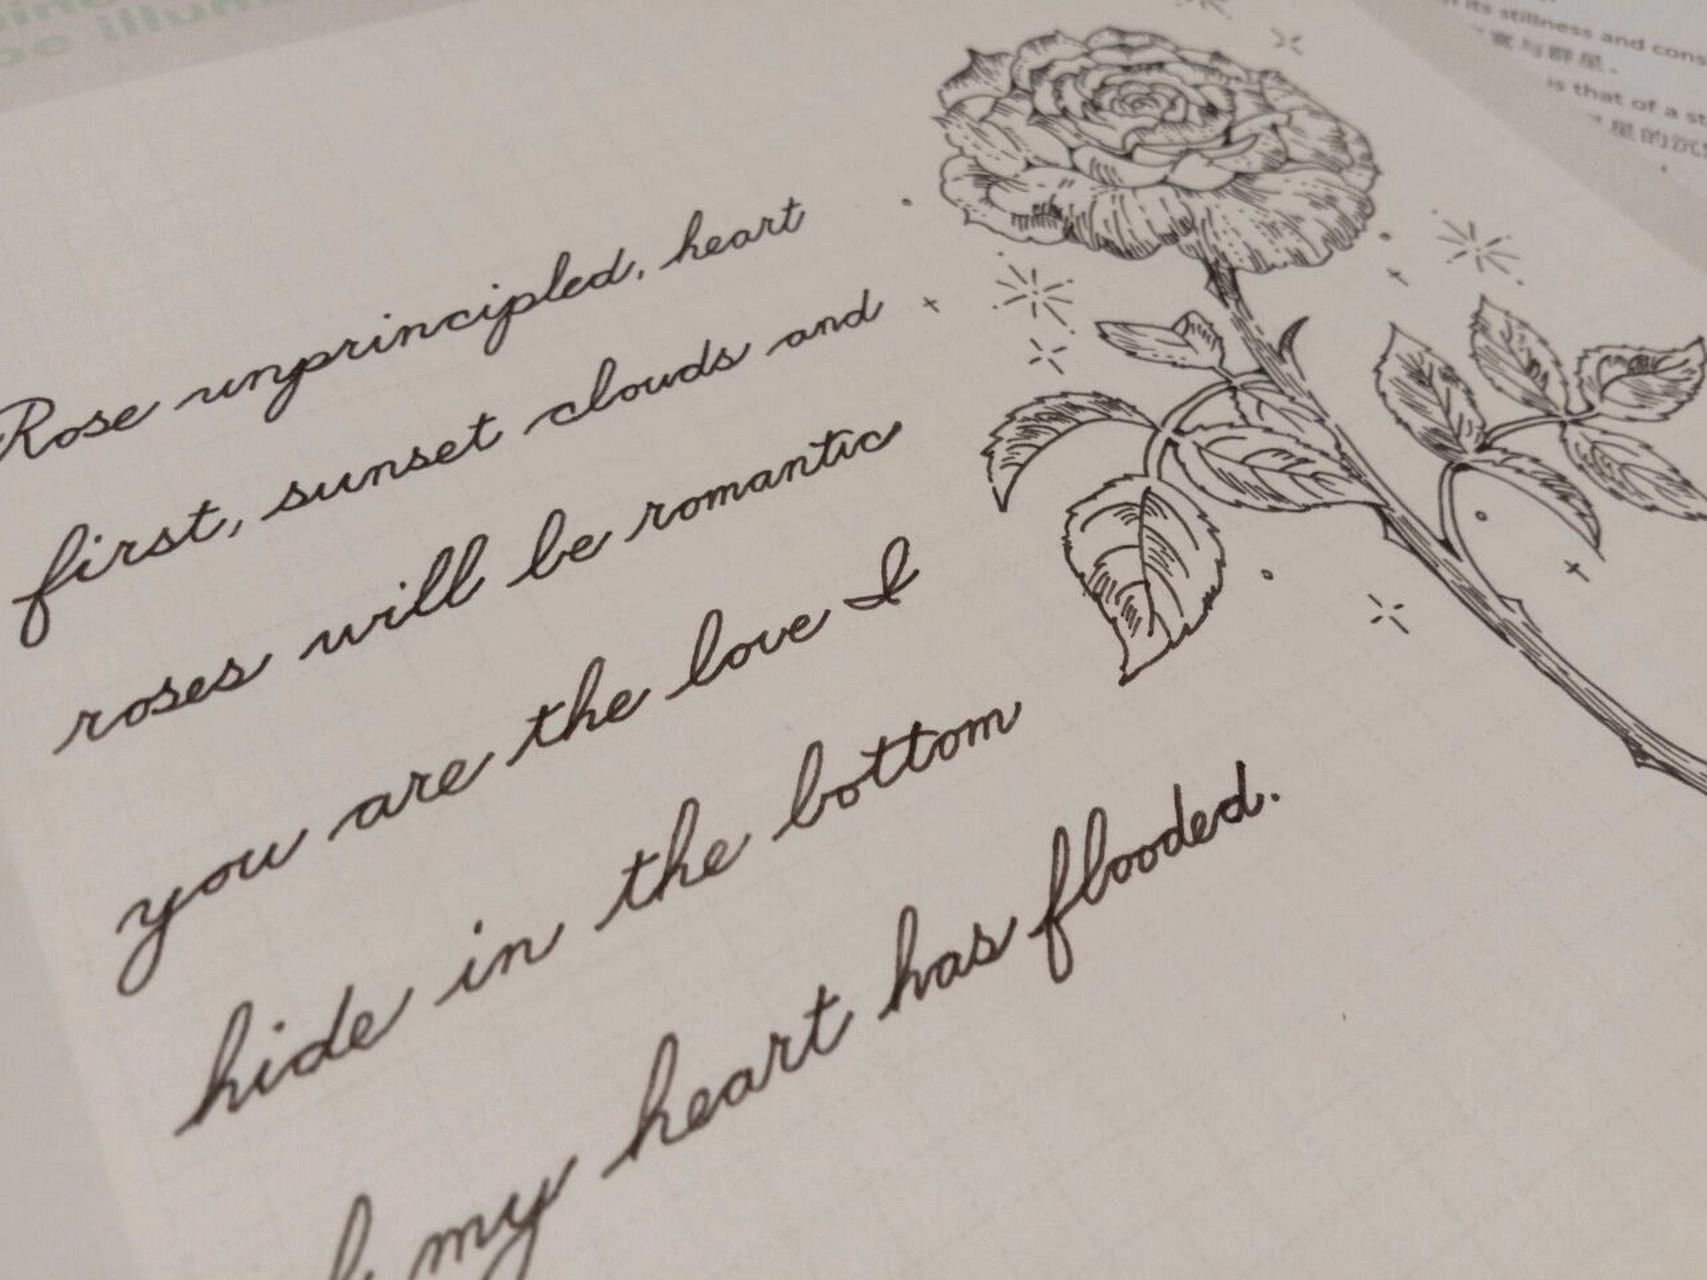 Rose unprincipled, heart
first, sunset clouds and
roses will be romantic
you are the love I
hide in the bottom
my heart has flooded.
its stillness and cons
意与群星。
is that of a st